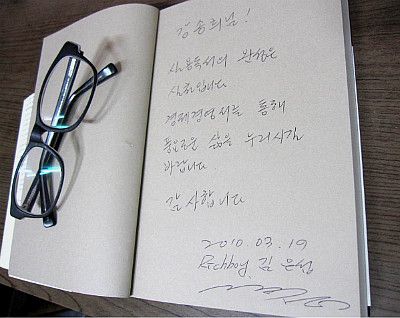 강송희님!
실용독서의 완성은
실천입니다
경제경영서를 통해
풍요로운 삶을 누리시길
바랍니다
감사합니다
2010. 03. 19
Richboy 김은섭